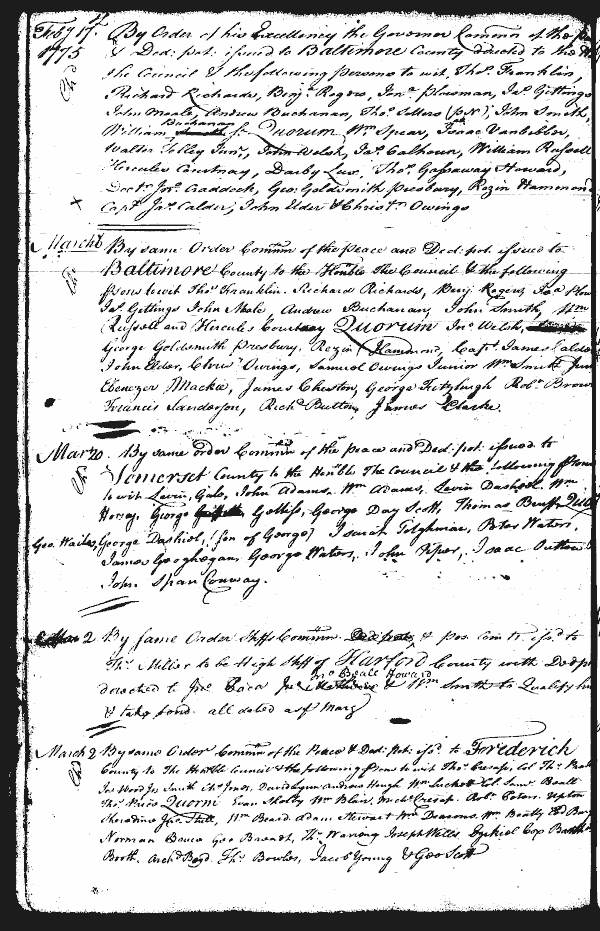 Feby 17th By Order of his Excellency the Governor Commn of the
1775 & Ded: pot: issued to Baltimore County directed to the
the Council & the following persons to wit, Thos. Franklin,
Richard Richards, Benjn Rogers, Jona Plowman, Jas. Gittings
John Moale, Andrew Buchanan, Thos. Sollers (pN), John Smith,
William Buchanan Quorum Wm Spear, Isaac Vanbibber,
Walter Tolley Junr, John Welsh, Jas. Calhoun, William Russell
Hercules Courtnay, Darby Lux, Thos. Gassaway Howard,
Doctr Jos. Craddock, Geo: Goldsmith Presbury, Rezin Hammond
Capt Jas. Calder, John Elder & Christr. Owings
March 6 By same Order Commn of the peace and Ded: pot. issued to
Baltimore County to the Honble The Council & the following
psons to wit Thos. Franklin. Richard Richards, Benj. Rogers,
Jas. Gittings John Moale, Andrew Buchanan, John Smith, Wm
Russell and Hercules Courtnay Quorum Jno. Welsh,
George Goldsmith Presbury. Rezin Hammond, Capt. James Calder
John Elder, Owings, Samuel Owings Junior Wm Smith Junr
Ebenezer Mackie, James Cheston, George Fitzhugh Robt. Brown
Francis Sanderson, Richd Button, James Clarke.
Mar 20. By same order Commn of the peace and Ded: pot: issued to
Somerset County to the Honble The Council & the following
to wit Levin Gale, John Adams, Wm Adams, Levin Dashiel. Wm
Horsey, George George Day Scott, Thomas Bruff
Geo. Wailes, George Dashiel, (son of George) Isaiah Tilghman, Peter Waters,
James Geoghegan, George Waters, John Piper, Isaac
John Span Conway.
2 By same Order Shffs Commn & com to issd. to
Thos. Miller to be High Shff of Harford County with Ded: p
directed to Beall Howard & Wm Smith to Qualify
& take bond. all dated as of
March 2 By same Order Commn of the Peace & Ded: pot: issd. to Frederick
County to The Honble Council & the following psons to wit Thos. Cresap, Col Thos.
Jos Wood Jos Smith Chs. Jones, David Lynn Andrew Hugh Wm Luckett Col. Saml Beall
Thos. Price Quorm Evan Shelby Wm Blair, Michl Cresap. Robt. Peter. Upton
Sheredine Wm Beard Adam Stewart Wm Deakins. Wm Beatty
Norman Bruce Geo Thos. Waring Joseph Wells Ezekiel Cox
Booth, Archd Boyd. Thos. Bowles, Jacob Young & Geo Scott